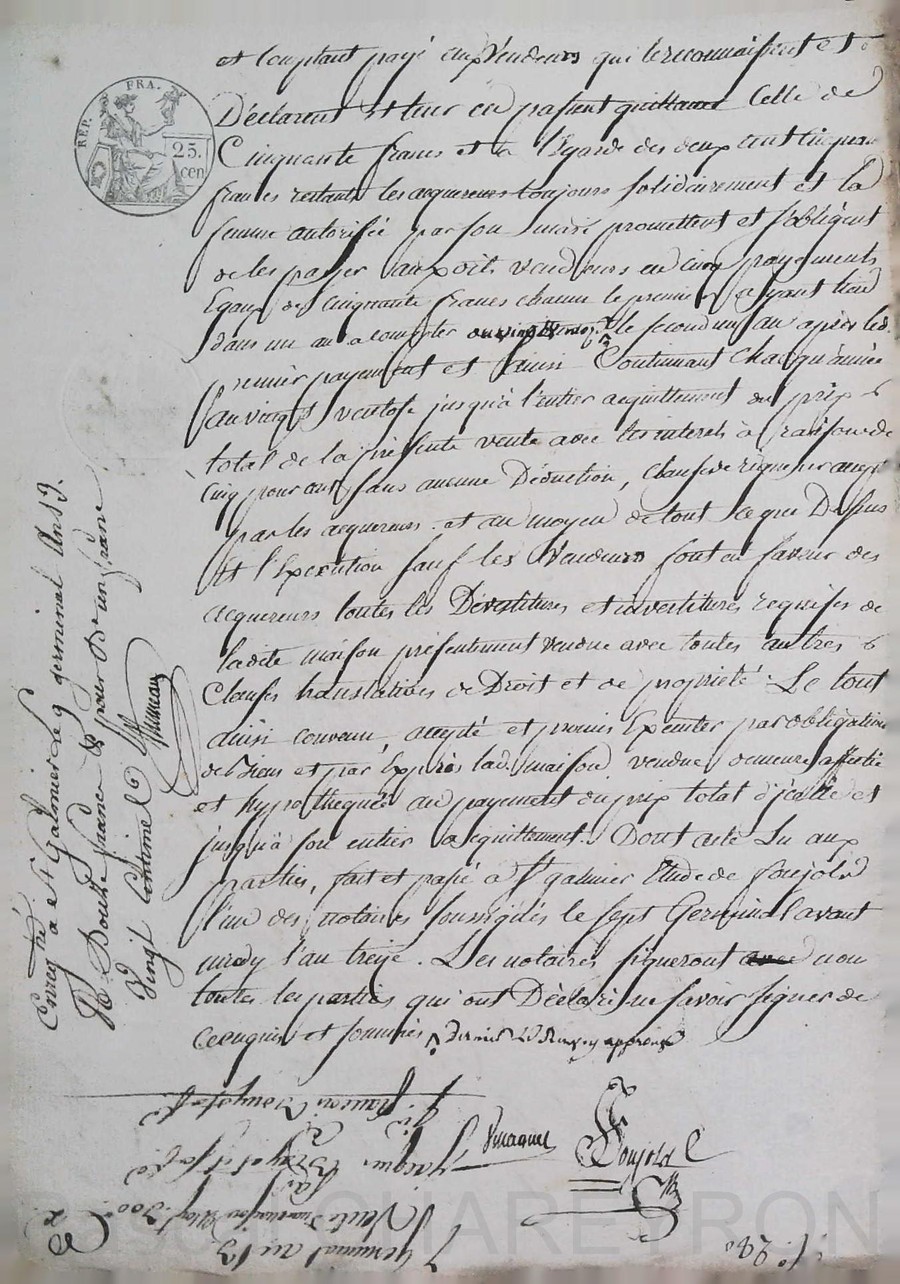 et Comptant payé aux Vendeurs qui le reconnaissent et
Déclarent Et leur en passent quittance Celle de
Cinquante francs et a l'Egard des deux cent Cinquante
francs restants les acquereurs toujours solidairement et la
femme autorisée par son mari promettent et s'obligent
de les payer auxdits vendeurs en cinq payements
Egaux de Cinquante francs chacun le premier ayant lieu
dans un an a compter le second un an après led.
premier payement et ainsi Continuant chacqu'année
au vingt ventose jusqu'à l'entier acquittement du prix
total de la présente vente avec les interets à raison de
Cinq pour cent sans aucune Déduction, Clause de rigueur
par les acquereurs. et au moyen de tout ce que Dessus
Et l'Execution sauf les Vendeurs font en faveur des
acquereurs toutes les Devetitures et investitures requises de
ladite maison présentement vendue avec toutes autres
Clauses translatives de Droit et de propriété. Le tout
ainsi convenu, accepté et promis Executer par obligation
de biens et par Exprès lad. maison vendue demeure affectée
et hypothequée au payement du prix total d'icelle et
jusqu'à son entier acquittement. Dont acte Lu aux
parties, fait et passé à St galmier Etude de Poujols
l'un des notaires soussignés le sept Germinal avant
midy l'an treize. Les notaires signeront non
toutes les parties qui ont Déclaré ne savoir signer de
ce enquis et sommés
Enregtré a St Galmier le 9 germinal An 13.
R. Douze francs & pour de un franc
Vingt Centimes
REP. FRA.
25.
cen
Poujols
7 Germinal an 13
Vente
300
Jacques
à
françois
CHAREYRON